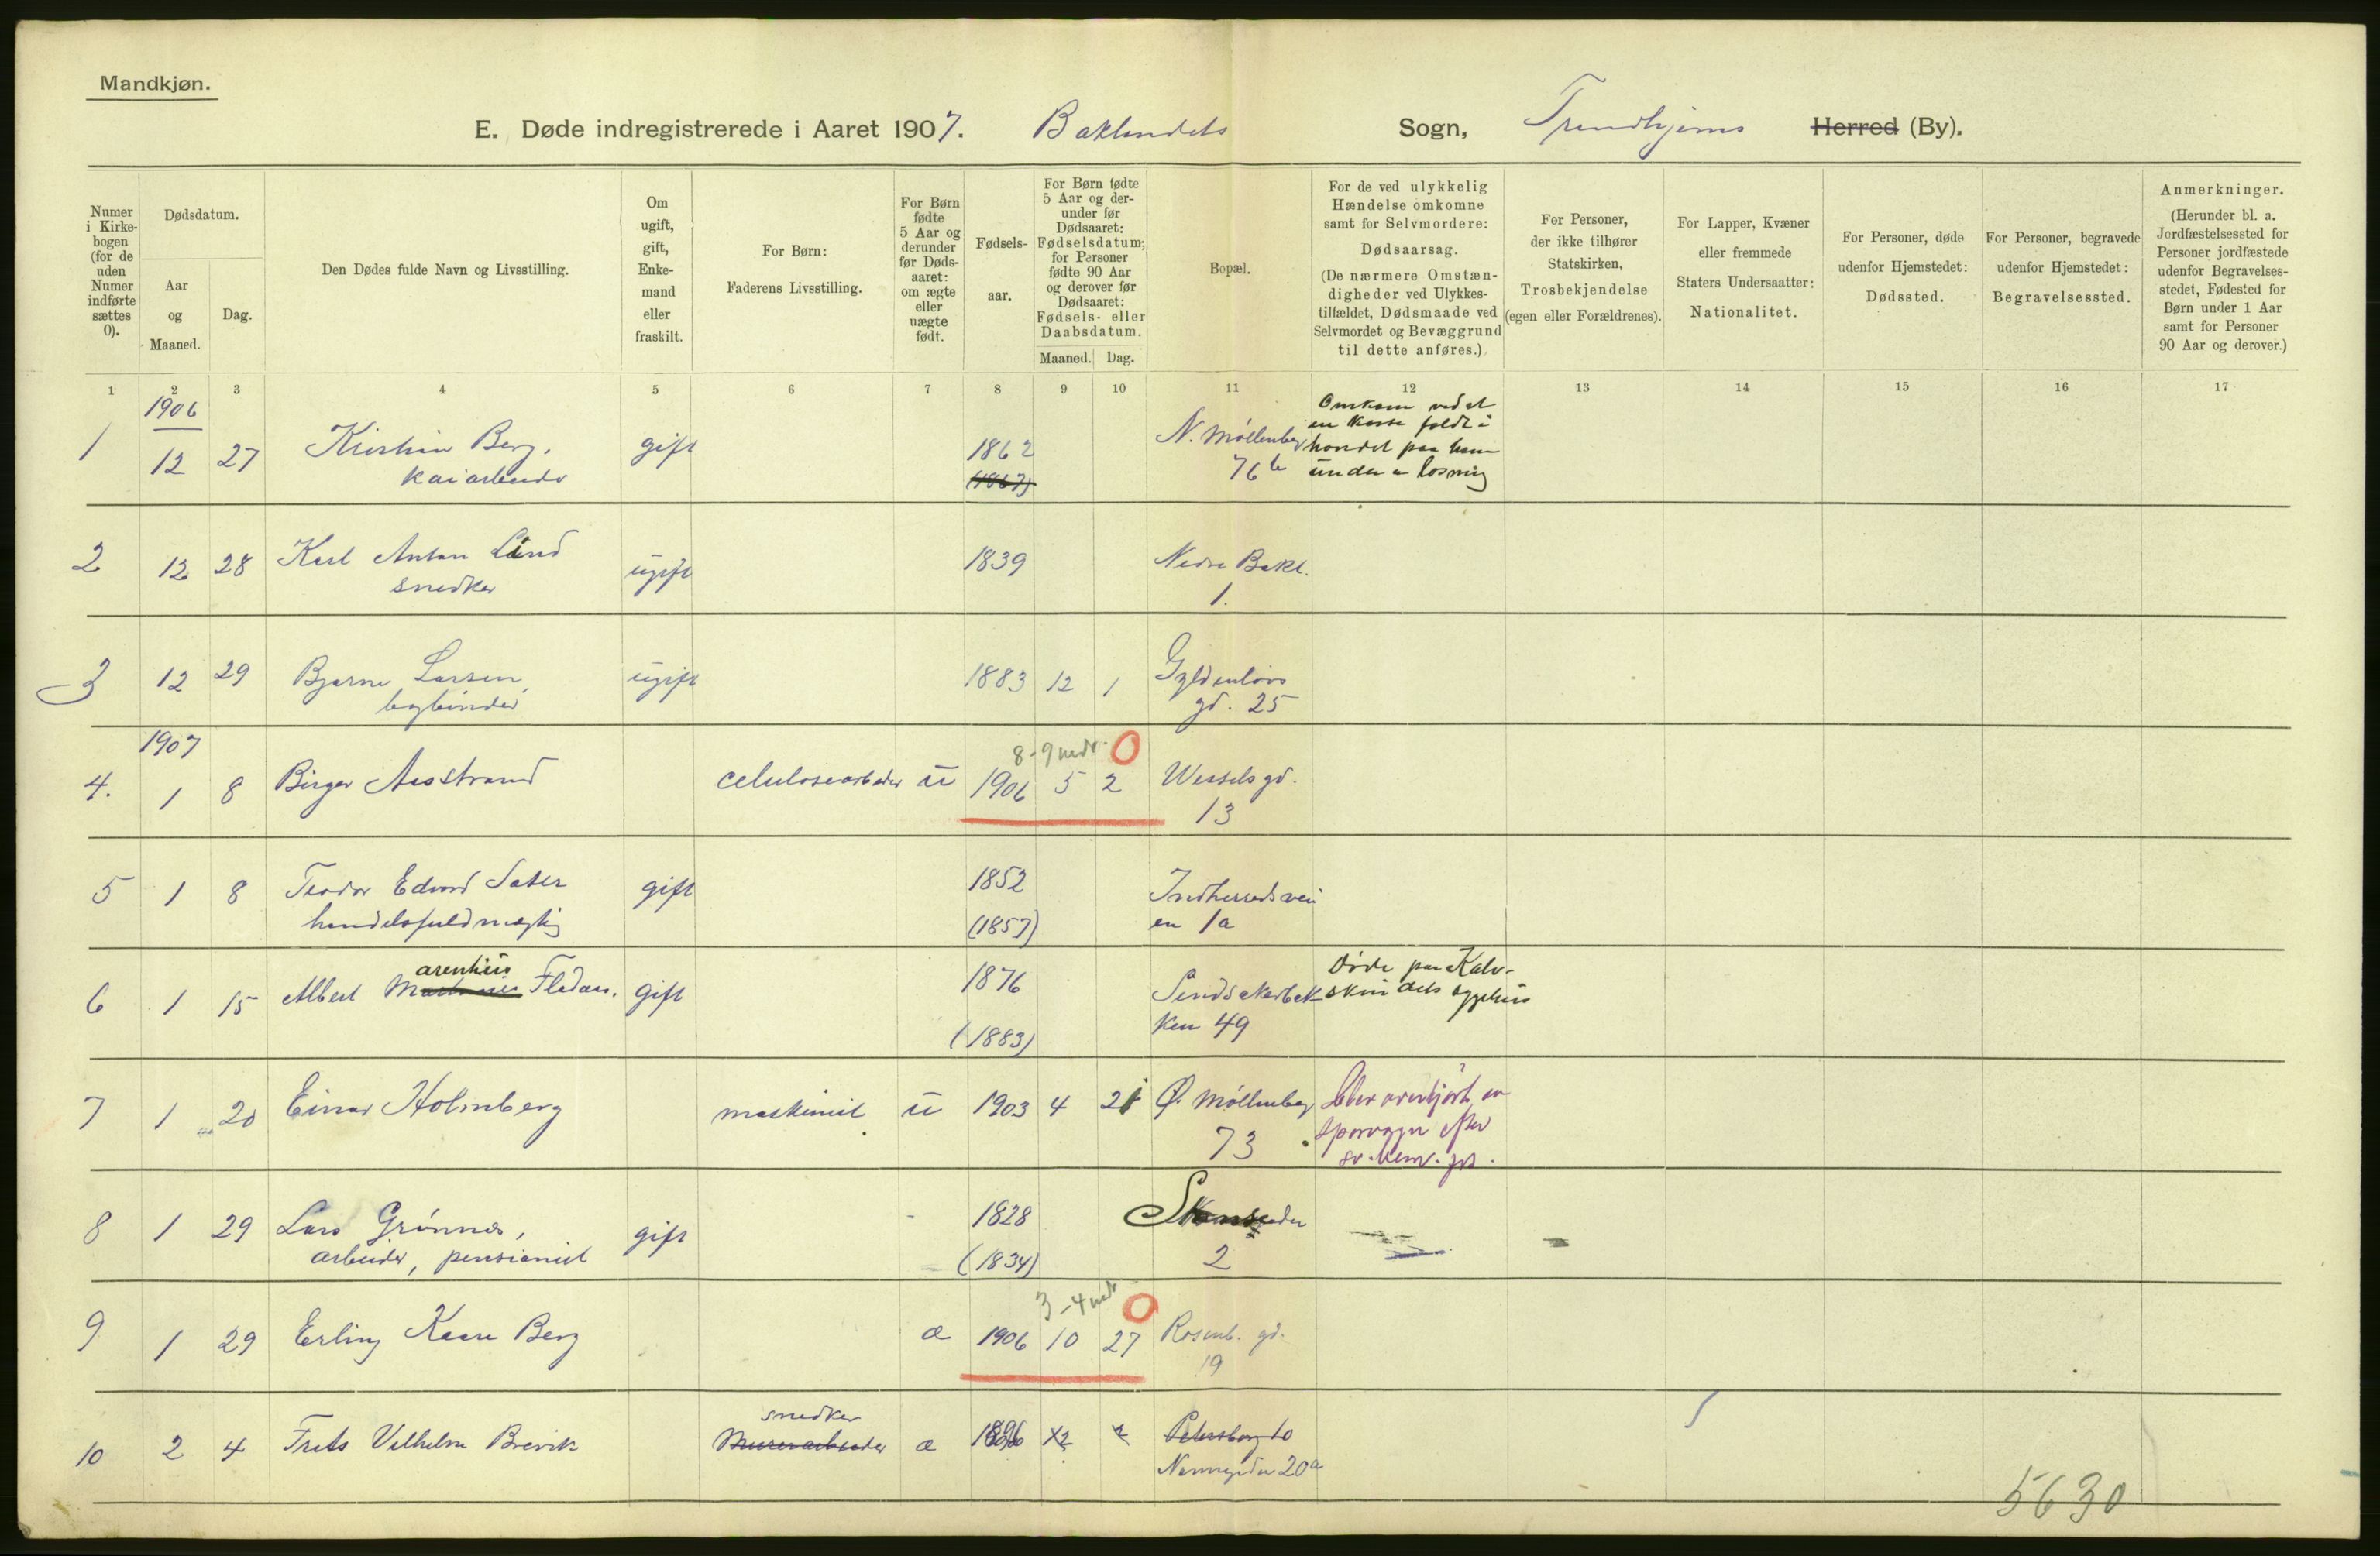 Mandkjøn.
E. Døde indregistrerede i Aaret 1907. Baklandets Sogn, Trondhjems Herred (By).
Numer i Kirkebogen (for de uden Numer indførte sættes 0).
Dødsdatum.
Aar og Maaned.
Dag.
Den Dødes fulde Navn og Livsstilling.
Om ugift, gift, Enkemand eller fraskilt.
For Børn: Faderens Livsstilling.
For Børn fødte 5 Aar og derunder før Dødsaaret: om ægte eller uægte født.
Fødselsaar.
For Børn fødte 5 Aar og derunder før Dødsaaret: Fødselsdatum; for Personer fødte 90 Aar og derover før Dødsaaret: Fødsels- eller Daabsdatum.
Maaned. Dag.
Bopæl.
For de ved ulykkelig Hændelse omkomne samt for Selvmordere: Dødsaarsag. (De nærmere Omstændigheder ved Ulykkestilfældet, Dødsmaade ved Selvmordet og Bevæggrund til dette anføres.)
For Personer, der ikke tilhører Statskirken, Trosbekjendelse (egen eller Forældrenes).
For Lapper, Kvæner eller fremmede Staters Undersaatter: Nationalitet.
For Personer, døde udenfor Hjemstedet: Dødssted.
For Personer, begravede udenfor Hjemstedet: Begravelsessted.
Anmerkninger. (Herunder bl. a. Jordfæstelsessted for Personer jordfæstede udenfor Begravelsesstedet, Fødested for Børn under 1 Aar samt for Personer 90 Aar og derover.)
1 2 3 4 5 6 7 8 9 10 11 12 13 14 15 16 17
1906
1 12 27 Kristian Berg, gift 1862 N. Møllenberg Omkom ved at
en kasse faldt i
hovedet paa ham
kaiarbeider (1867) 76b under losning
2 12 28 Karl Anton Lind ugift 1839 Nedre Bakl.
snedker 1.
3 12 29 Bjarne Larsen, ugift 1883 12 1 Gyldenløvs
bogbinder gd. 25
1907 8-9 mdr. 0
4. 1 8 Birger Aasstrand celulosearbeider u 1906 5 2 Wesselsgd.
13
5 1 8 Teodor Edvard Sater gift 1852 Indherredsvei
handelsfuldmægtig (1857) en 1a
arentius Døde paa Kalv-
6 1 15 Albert M Fladaas. gift 1876 skindets sygehus
(1883) ken 49
7 1 20 Einar Holmberg maskinist u 1903 4 21 Ø. Møllenberg Blev overkjørt av
73 sporvogn efter
8 1 29 Lars Grønnes, gift 1828
arbeider, pensionist (1834) 2
3-4 mdr 0
9 1 29 Erling Kaare Berg æ 1906 10 27 Rosenb. gd.
19
snedker
10 2 4 Frits Vilhelm Brevik Murerarbeider æ Petersborg 10
Nonnegaden 20a
5630